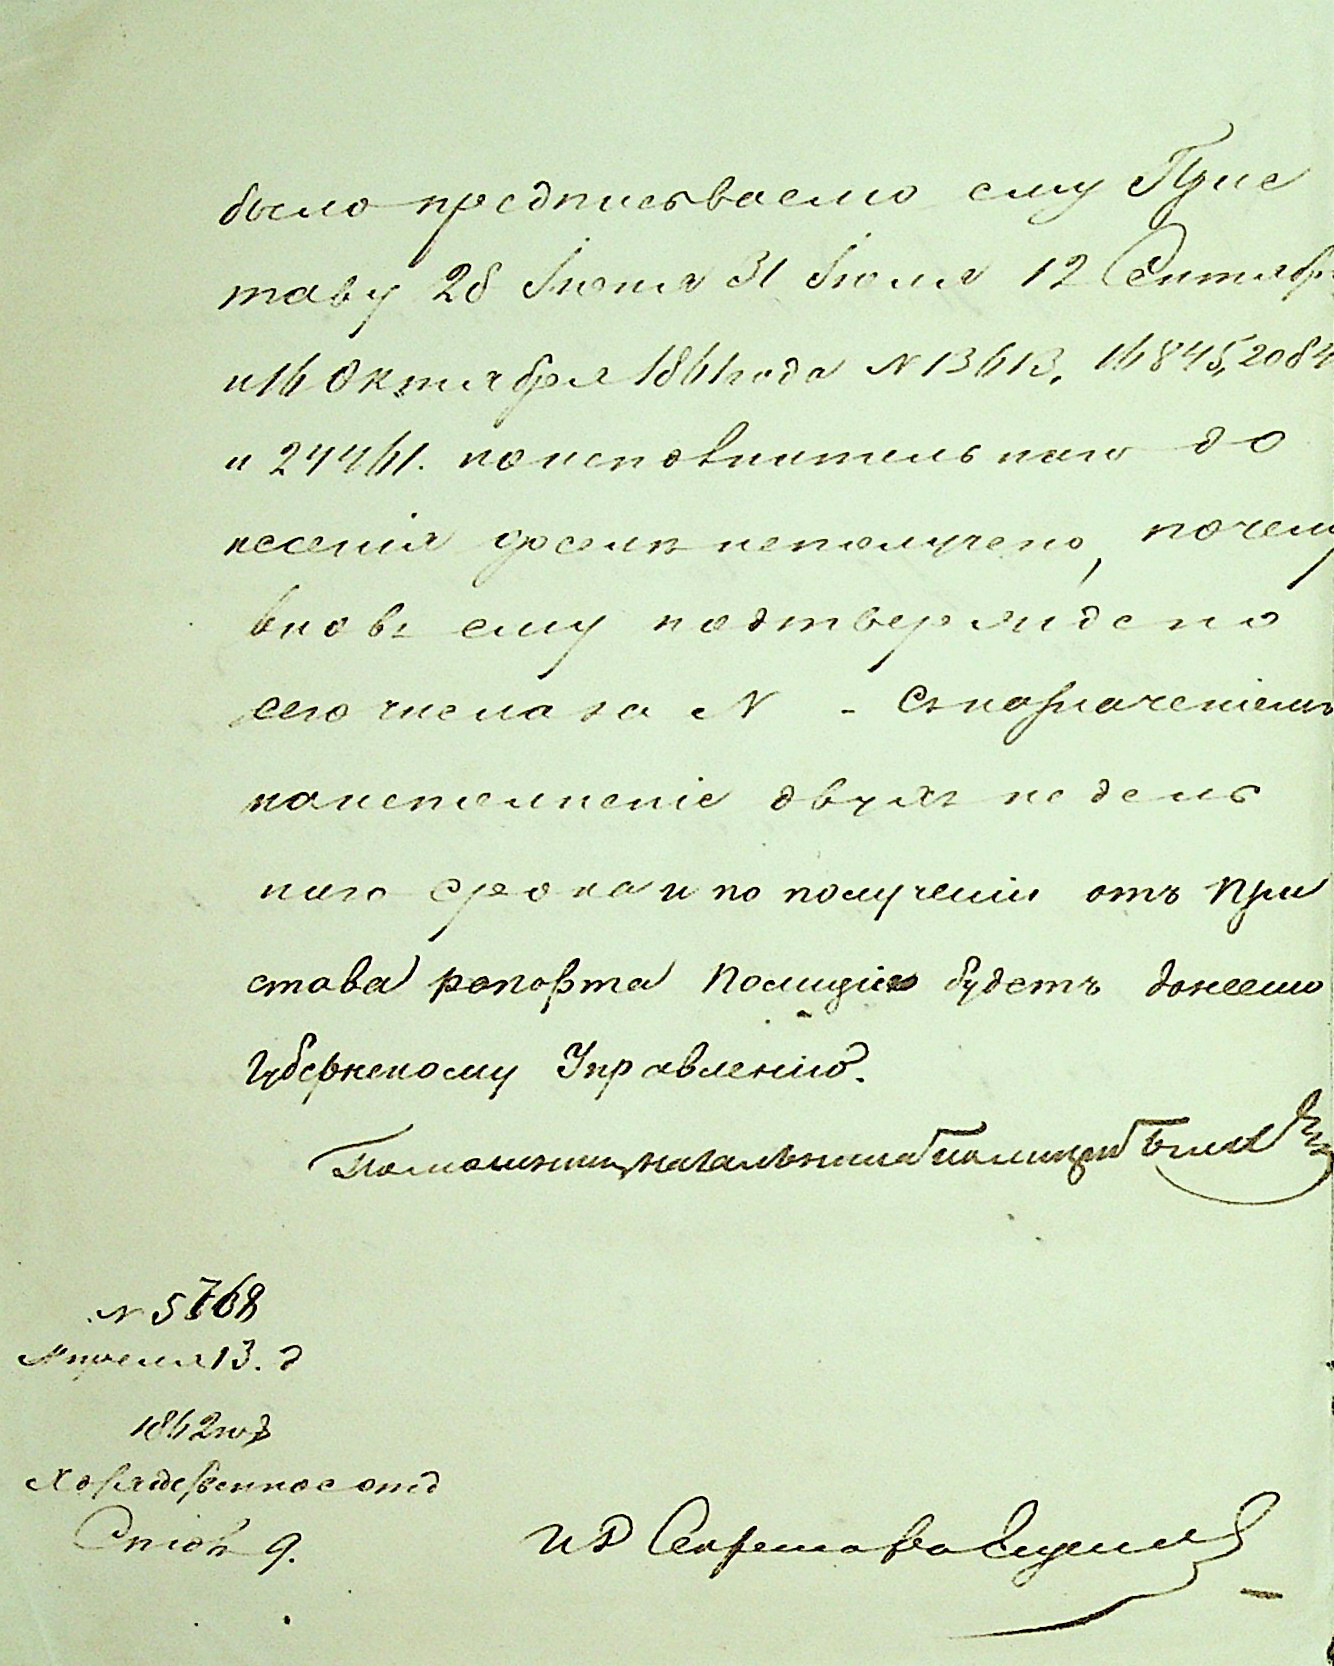 было предписываемо ему Прис
таву 28 Іюня 31 Іюля 12 Сентября
и 16 Октября 1861 года N 13613, 16845, 2084
и 24461. но исполнительнаго до
несенія доселе неполучено, почему
вновь ему подтверждено
сего числа за N - съ назначеніемъ
на исполненіе двухъ недель
наго срока и по полученіи отъ При
става рапорта Полиціею будетъ донесено
Губернскому Управленію.
Помощникъ начальника полиціи
N 5768
Апреля 13. д
1862 год
Хозяйственное отд
Столъ 9.
И Д Секретаря